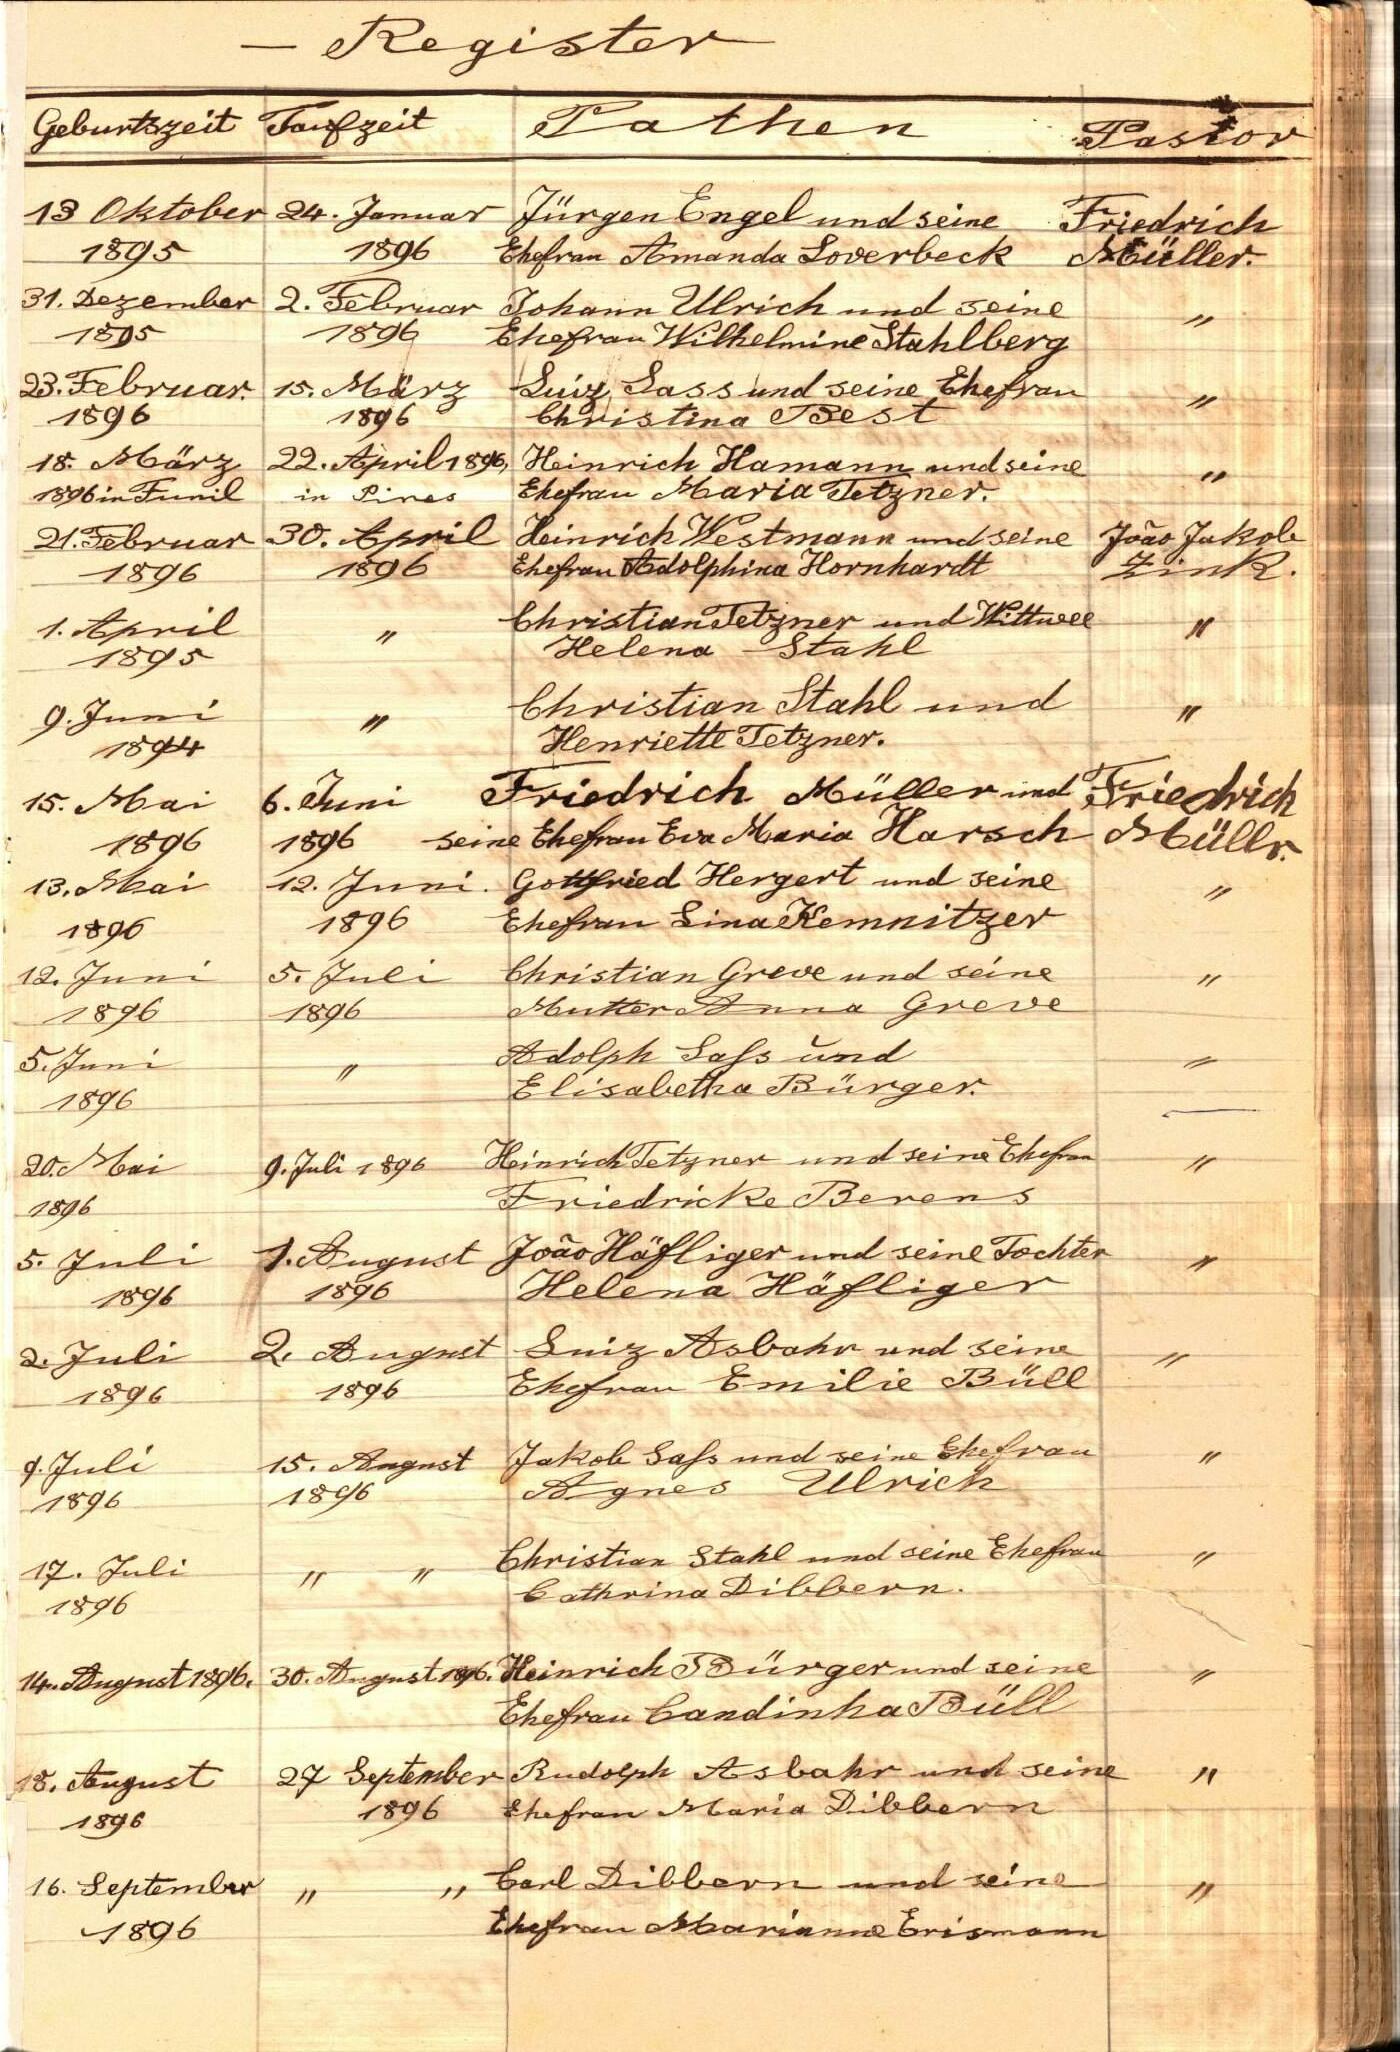 — Register
Geburtszeit Taufzeit Pathen Pastor
13 Oktober 24. Januar Jürgen Engel und seine Friedrich
1895 1896 Ehefrau Amanda Loverbeck Müller.
31. Dezember 2. Februar Johann Ulrich und seine
1895 1896 Ehefrau Wilhelmine Stahlberg "
23. Februar. 15. März Luiz Sass und seine Ehefrau
1896 1896 Christina Best "
18. März 22. April 1896, Heinrich Hamann und seine
1896 in Funil in Pires Ehefrau Maria Tetzner. "
21. Februar 30. April Heinrich Westmann und seine João Jakob
1896 1896 Ehefrau Adolphina Hornhardt Zink.
1. April " Christian Tetzner und Wittwee "
1895 Helena Stahl
9. Juni " Christian Stahl und "
1894 Henriette Tetzner.
15. Mai 6. Juni Friedrich Müller und Friedrich
1896 1896 seine Ehefrau Eva Maria Harsch Müllr.
13. Mai 12. Juni. Gottfried Hergert und seine "
1896 1896 Ehefrau Lina Kemnitzer
12. Juni 5. Juli Christian Greve und seine "
1896 1896 Mutter Anna Greve
5. Juni " Adolph Saſs und "
1896 Elisabetha Bürger.
20. Mai 9. Juli 1896 Heinrich Tetzner und seine Ehefrau "
1896 Friedricke Berens
5. Juli 1. August João Häfliger und seine Tochter "
1896 1896 Helena Häfliger
2. Juli 2. August Luiz Asbahr und seine "
1896 1896 Ehefrau Emilie Büll
9. Juli 15. August Jakob Saſs und seine Ehefrau "
1896 1896 Agnes Ulrich
17. Juli " " Christian Stahl und seine Ehefrau "
1896 Cathrina Dibbern.
14. August 1896. 30. August 1896. Heinrich Bürger und seine "
Ehefrau Candinha Büll
18. August 27 September Rudolph Asbahr und seine "
1896 1896 Ehefrau Maria Dibbern
16. September " " Carl Dibbern und seine "
1896 Ehefrau Marianne Erismann